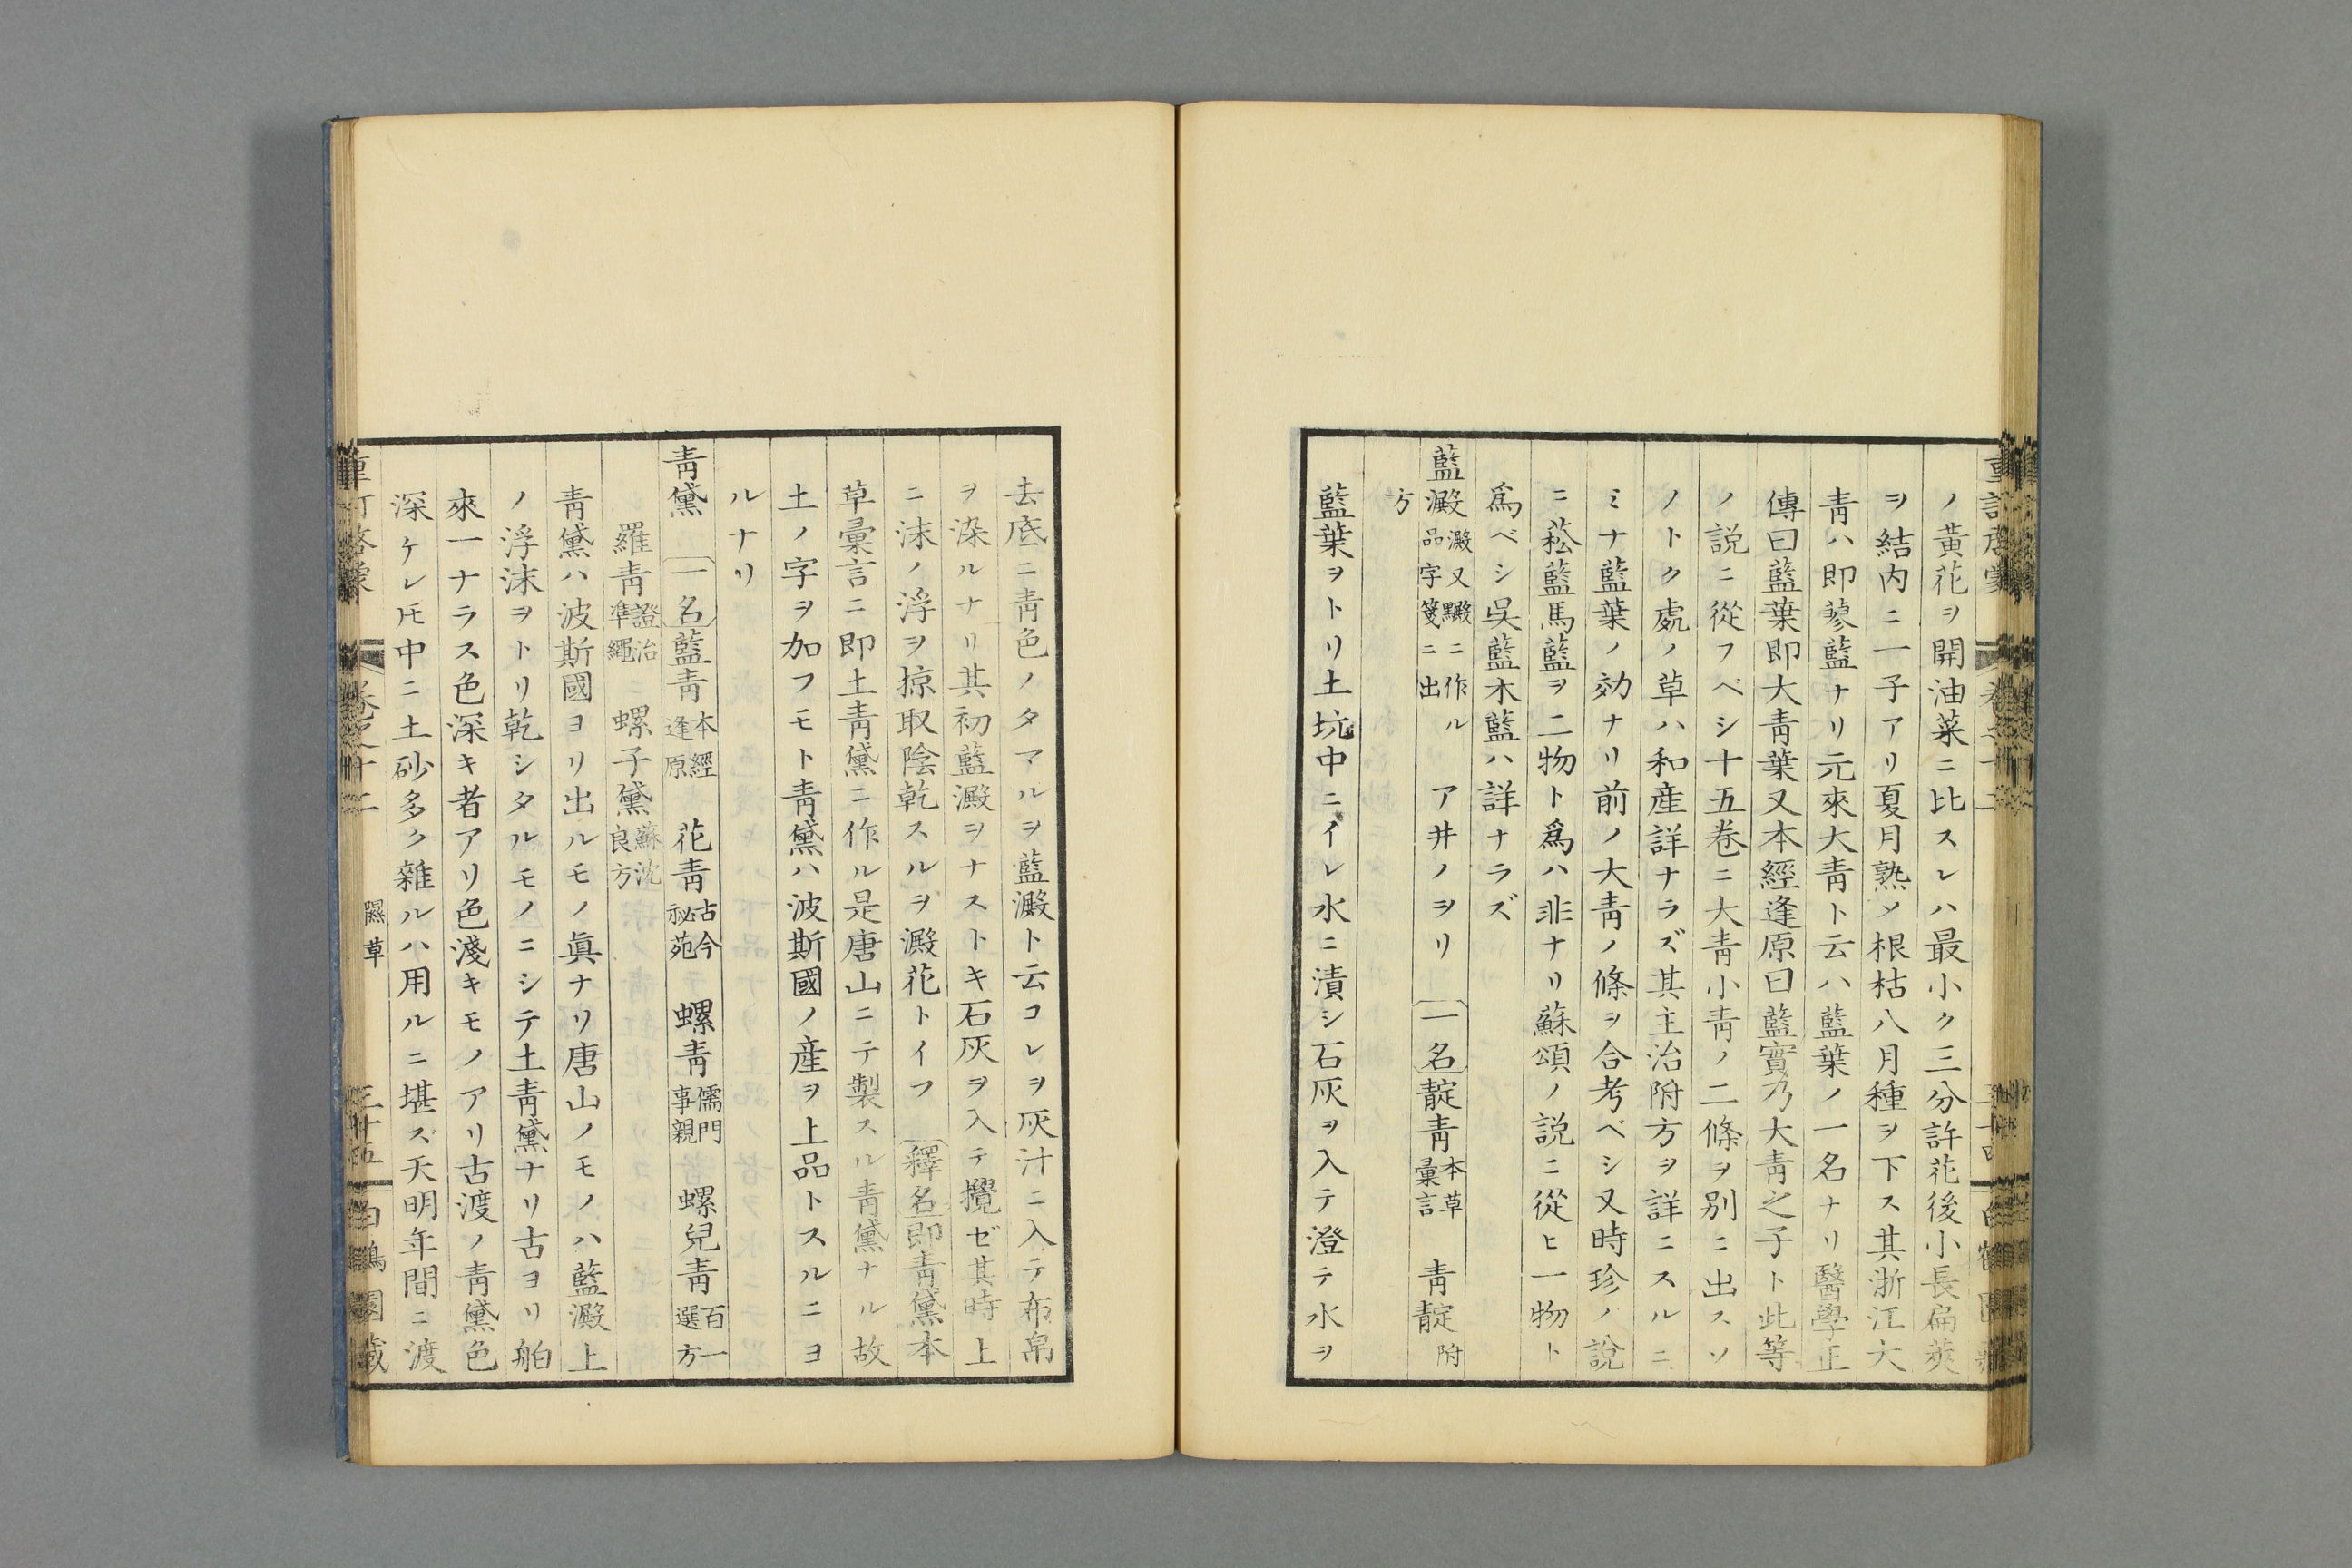 ノ黄花ヲ開油菜ニ比スレハ最小ク三分許花後小長扁莢
ヲ結内ニ一子アリ夏月熟〆根枯八月種ヲ下ス其浙江大
青ハ即蓼藍ナリ元來大青ト云ハ藍葉ノ一名ナリ醫學正
傳曰藍葉即大青葉又本經逢原曰藍實乃大青之子ト此等
ノ説ニ從フベシ十五卷ニ大青小青ノ二條ヲ別ニ出スソ
ノトク處ノ草ハ和産詳ナラズ其主治附方ヲ詳ニスルニ
ミナ藍葉ノ効ナリ前ノ大青ノ條ヲ合考ベシ又時珍ノ說
ニ菘藍馬藍ヲ二物ト爲ハ非ナリ蘇頌ノ説ニ從ヒ一物ト
爲ベシ吳藍木藍ハ詳ナラズ
藍澱 澱又㵮ニ作ル品字箋ニ出 ア井ノヲリ 一名 靛青 本草彙言 青靛 附
方
藍葉ヲトリ土坑中ニイレ水ニ漬シ石灰ヲ入テ澄テ水ヲ
去底ニ青色ノタマルヲ藍澱ト云コレヲ灰汁ニ入テ布帛
ヲ染ルナリ其初藍澱ヲナストキ石灰ヲ入テ攪ゼ其時上
ニ沫ノ浮ヲ掠取陰乾スルヲ澱花トイフ 釋名 即青黛本
草彙言ニ即土青黛ニ作ル是唐山ニテ製スル青黛ナル故
土ノ字ヲ加フモト青黛ハ波斯國ノ産ヲ上品トスルニヨ
ルナリ
青黛 一名 藍青 本經逢原 花青 古今祕苑 螺青 儒門事親 螺兒青 百一選方
羅青 證治準繩 螺子黛 蘇沈良方
青黛ハ波斯國ヨリ出ルモノ眞ナリ唐山ノモノハ藍澱上
ノ浮沫ヲトリ乾シタルモノニシテ土青黛ナリ古ヨリ舶
來一ナラス色深キ者アリ色淺キモノアリ古渡ノ青黛色
深ケレ𪜈中ニ土砂多ク雜ルハ用ルニ堪ズ天明年間ニ渡
卷之十二 隰草 三十五